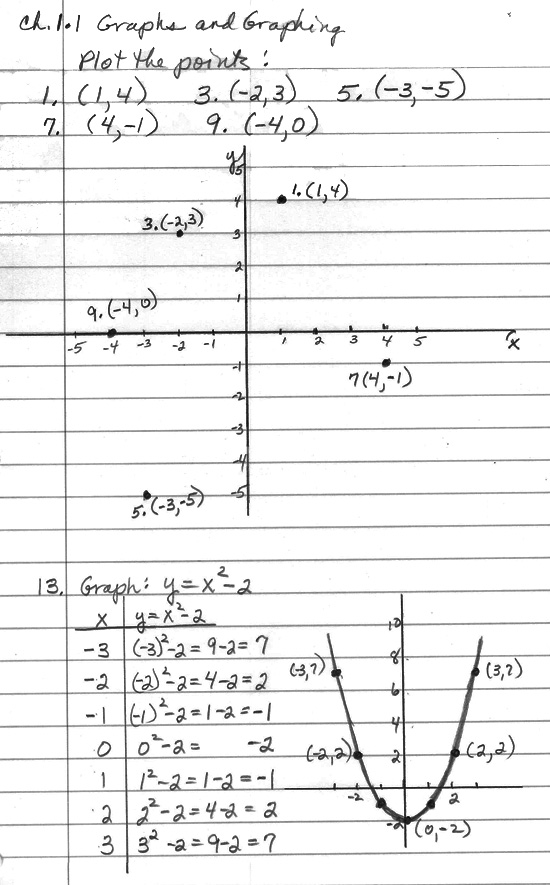 Ch. 1.1 Graphs and Graphing
Plot the points:
1. (1,4) 3. (-2,3) 5. (-3,-5)
7. (4,-1) 9. (-4,0)
y
5
4 1. (1,4)
3. (-2,3)
3
2
9. (-4,0) 1
-5 -4 -3 -2 -1 1 2 3 4 5 x
-1
7 (4,-1)
-2
-3
-4
5. (-3,-5) -5
13. Graph: y = x²-2
x y = x²-2
-3 (-3)²-2 = 9-2 = 7
-2 (-2)²-2 = 4-2 = 2
-1 (-1)²-2 = 1-2 = -1
0 0²-2 = -2
1 1²-2 = 1-2 = -1
2 2²-2 = 4-2 = 2
3 3²-2 = 9-2 = 7
10
8
(-3,7) (3,7)
6
4
(-2,2) 2 (2,2)
-2 2
-2 (0,-2)